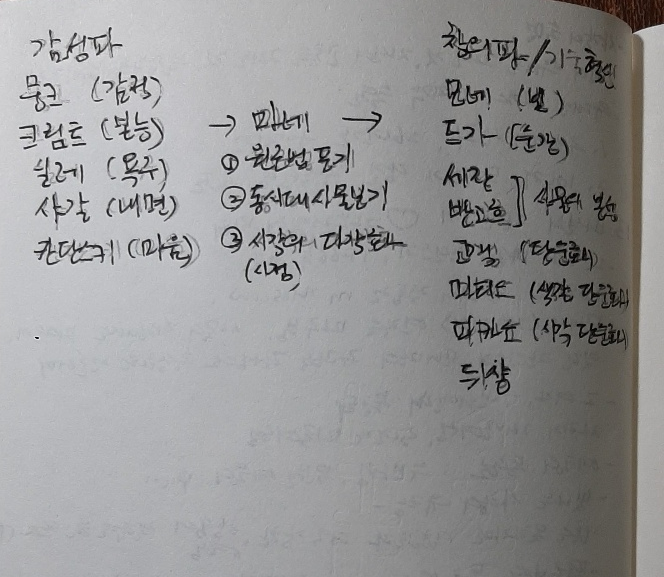 감성파
뭉크 (감정)
크림트 (본능)
쉴레 (욕구)
샤갈 (내면)
칸딘스키 (마음)
→ 마네 →
① 원근법 포기
② 동시대 사물보기
③ 시각의 다각화
(시점)
창의파/기술혁신
모네 (빛)
드가 (순간)
세잔
반고흐 ] 사물의 본성
고갱 (단순화)
마티스 (색감 단순화)
피카소 (시각 단순화)
뒤샹